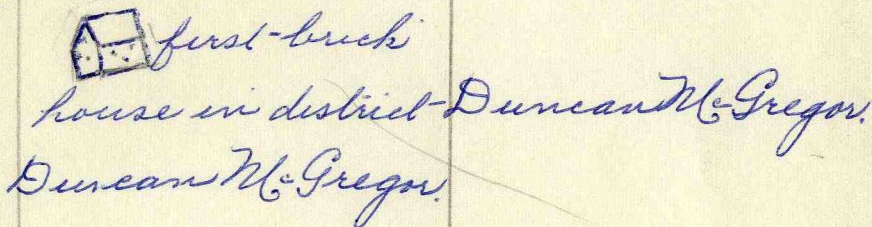 first-brick
house in district- Duncan McGregor.
Duncan McGregor.